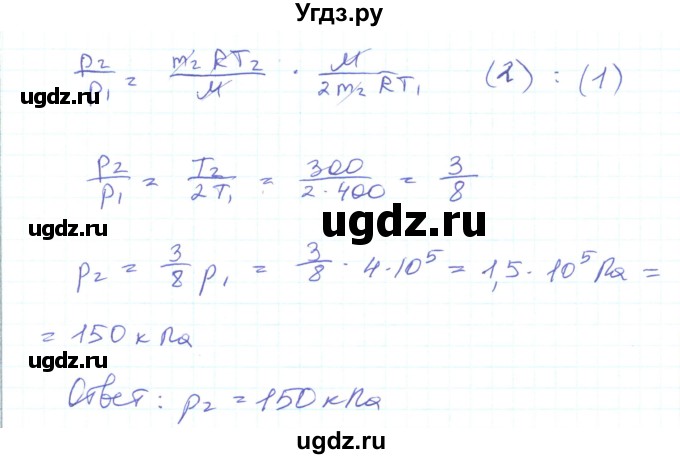 Угдз.ру
p₂/p₁ = m₂RT₂/M · M/2m₂RT₁ (2) : (1)
ugdz.ru
p₂/p₁ = T₂/2T₁ = 300/2·400 = 3/8
ugdz.ru ugdz.ru ugdz.ru
p₂ = 3/8 p₁ = 3/8 · 4·10⁵ = 1,5·10⁵ Па =
= 150 кПа
ugdz.ru ugdz.ru
Ответ: p₂ = 150 кПа
ugdz.ru